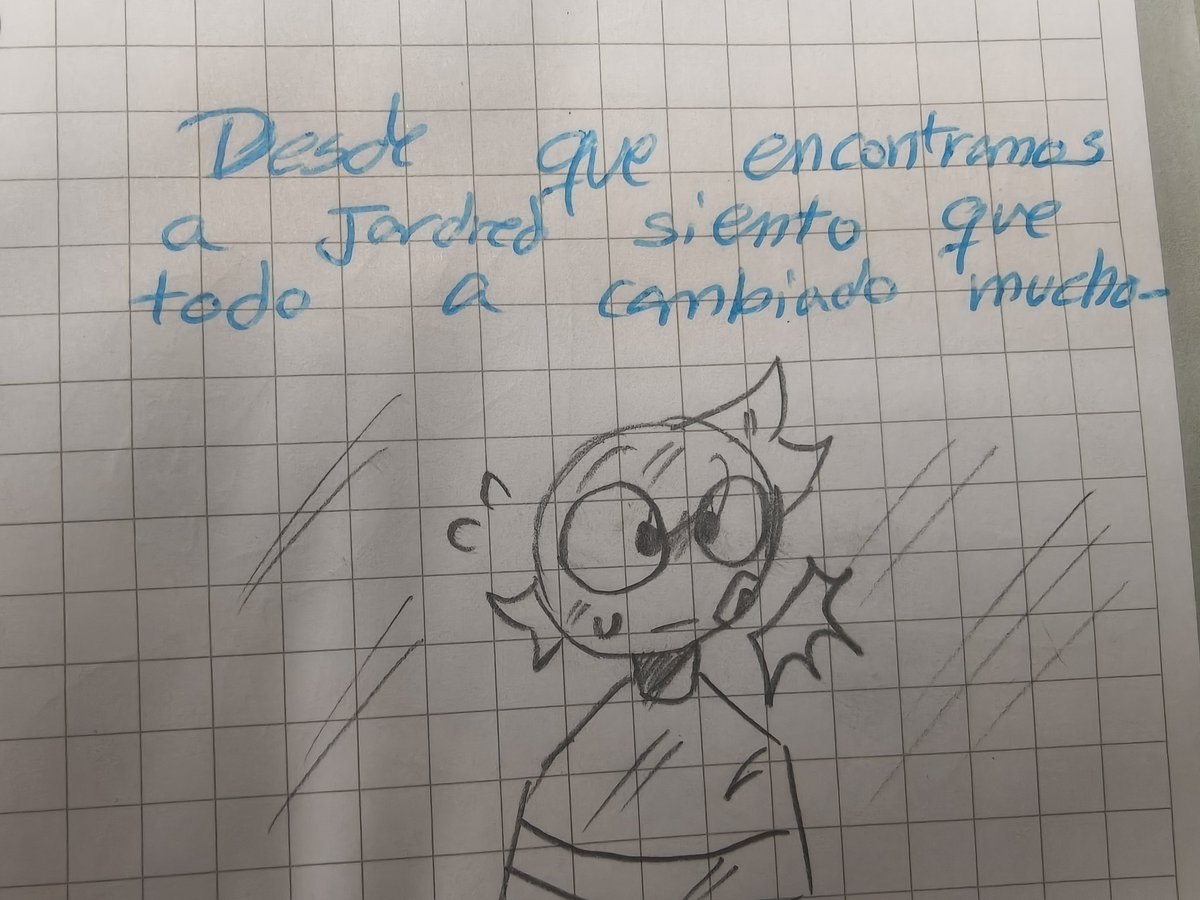 Desde que encontramos
a Jardred siento que
todo a cambiado mucho-